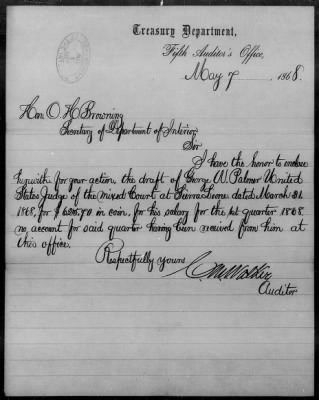 Treasury Department,
Fifth Auditor's Office,
May 7 1868.
Hon. O. H. Browning
Secretary of Department of Interior
Sir
I have the honor to enclose
herewith for your action, the draft of George W. Palmer United
States Judge of the mixed Court at Sierra Leone dated March 31
1868, for $ in coin, for his salary for the 1st quarter 1868
no account for said quarter having been received from him at
this office.
Respectfully yours
Auditor